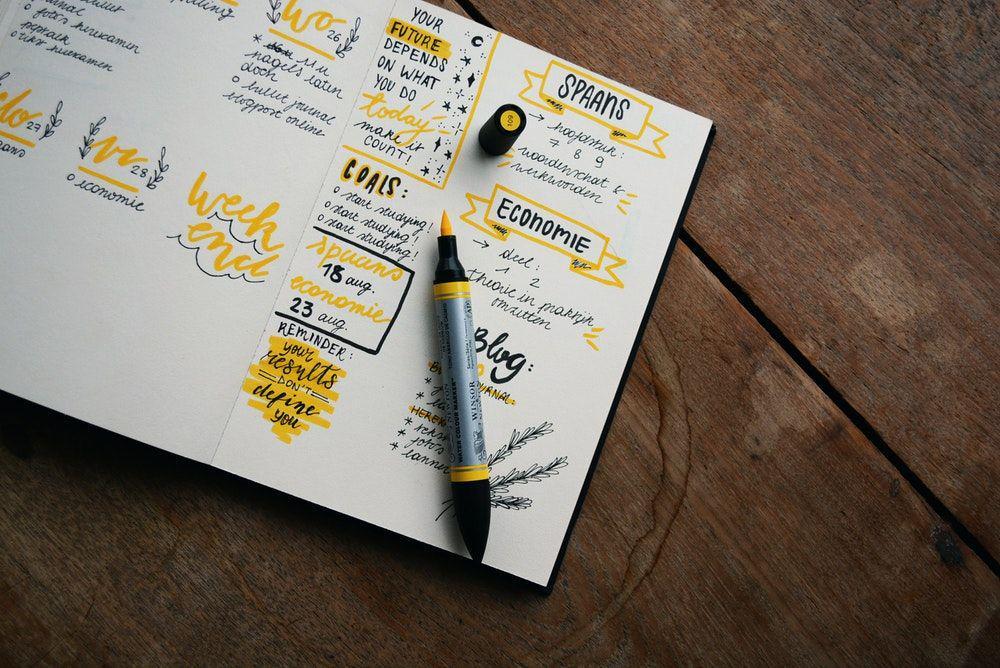 herexamen
herexamen
wo 26
* 11u
nagels laten
o bullet journal
blogpost online
do 27
vr 28
o economie
week
end
YOUR
FUTURE
DEPENDS
ON WHAT
YOU DO
today
make it
COUNT!
GOALS:
o start studying!
o start studying!
o start studying!
spaans
18 aug.
economie
23 aug.
REMINDER:
your
results
DON'T
define
you
SPAANS
→ hoofdstuk:
7 8 9
woordenschat &
werkwoorden
ECONOMIE
→ deel:
1 2
theorie in praktijk
omzetten
Blog:
109
WATER COLOUR MARKER
WINSOR